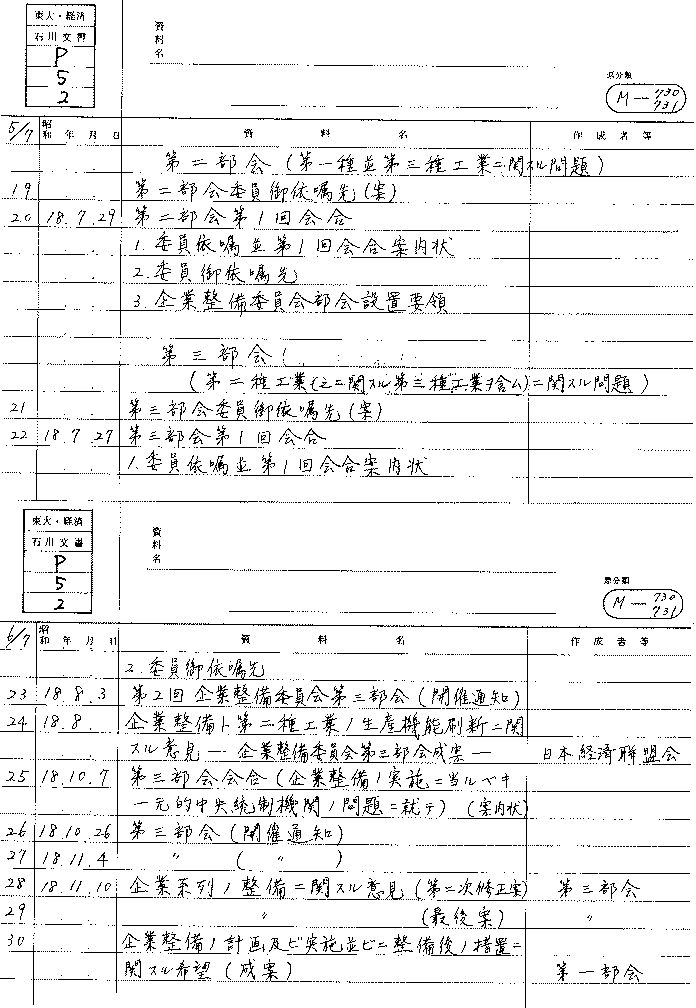 東大・経済
石川文書
P
5
2
資料名
原分類
M—730
731
5/7 昭和 年 月 日 資 料 名 作成者等
第二部会(第一種並第三種工業ニ関スル問題)
19 第二部会委員御依嘱先(案)
20 18.7.29 第二部会第1回会合
1.委員依嘱並第1回会合案内状
2.委員御依嘱先
3.企業整備委員会部会設置要領
第三部会
(第二種工業(之ニ関スル第三種工業ヲ含ム)ニ関スル問題)
21 第三部会委員御依嘱先(案)
22 18.7.27 第三部会第1回会合
1.委員依嘱並第1回会合案内状
東大・経済
石川文書
P
5
2
資料名
原分類
M—730
731
6/7 昭和 年 月 日 資 料 名 作成者等
2.委員御依嘱先
23 18.8.3 第2回企業整備委員会第三部会(開催通知)
24 18.8. 企業整備ト第二種工業ノ生産機能刷新ニ関
スル意見—企業整備委員会第三部会成案— 日本経済聯盟会
25 18.10.7 第三部会会合(企業整備ノ実施ニ当ルベキ
一元的中央統制機関ノ問題ニ就テ)(案内状)
26 18.10.26 第三部会(開催通知)
27 18.11.4 〃 (〃)
28 18.11.10 企業系列ノ整備ニ関スル意見(第二次修正案) 第三部会
29 〃 (最後案) 〃
30 企業整備ノ計画及ビ実施並ビニ整備後ノ措置ニ
関スル希望(成案) 第一部会